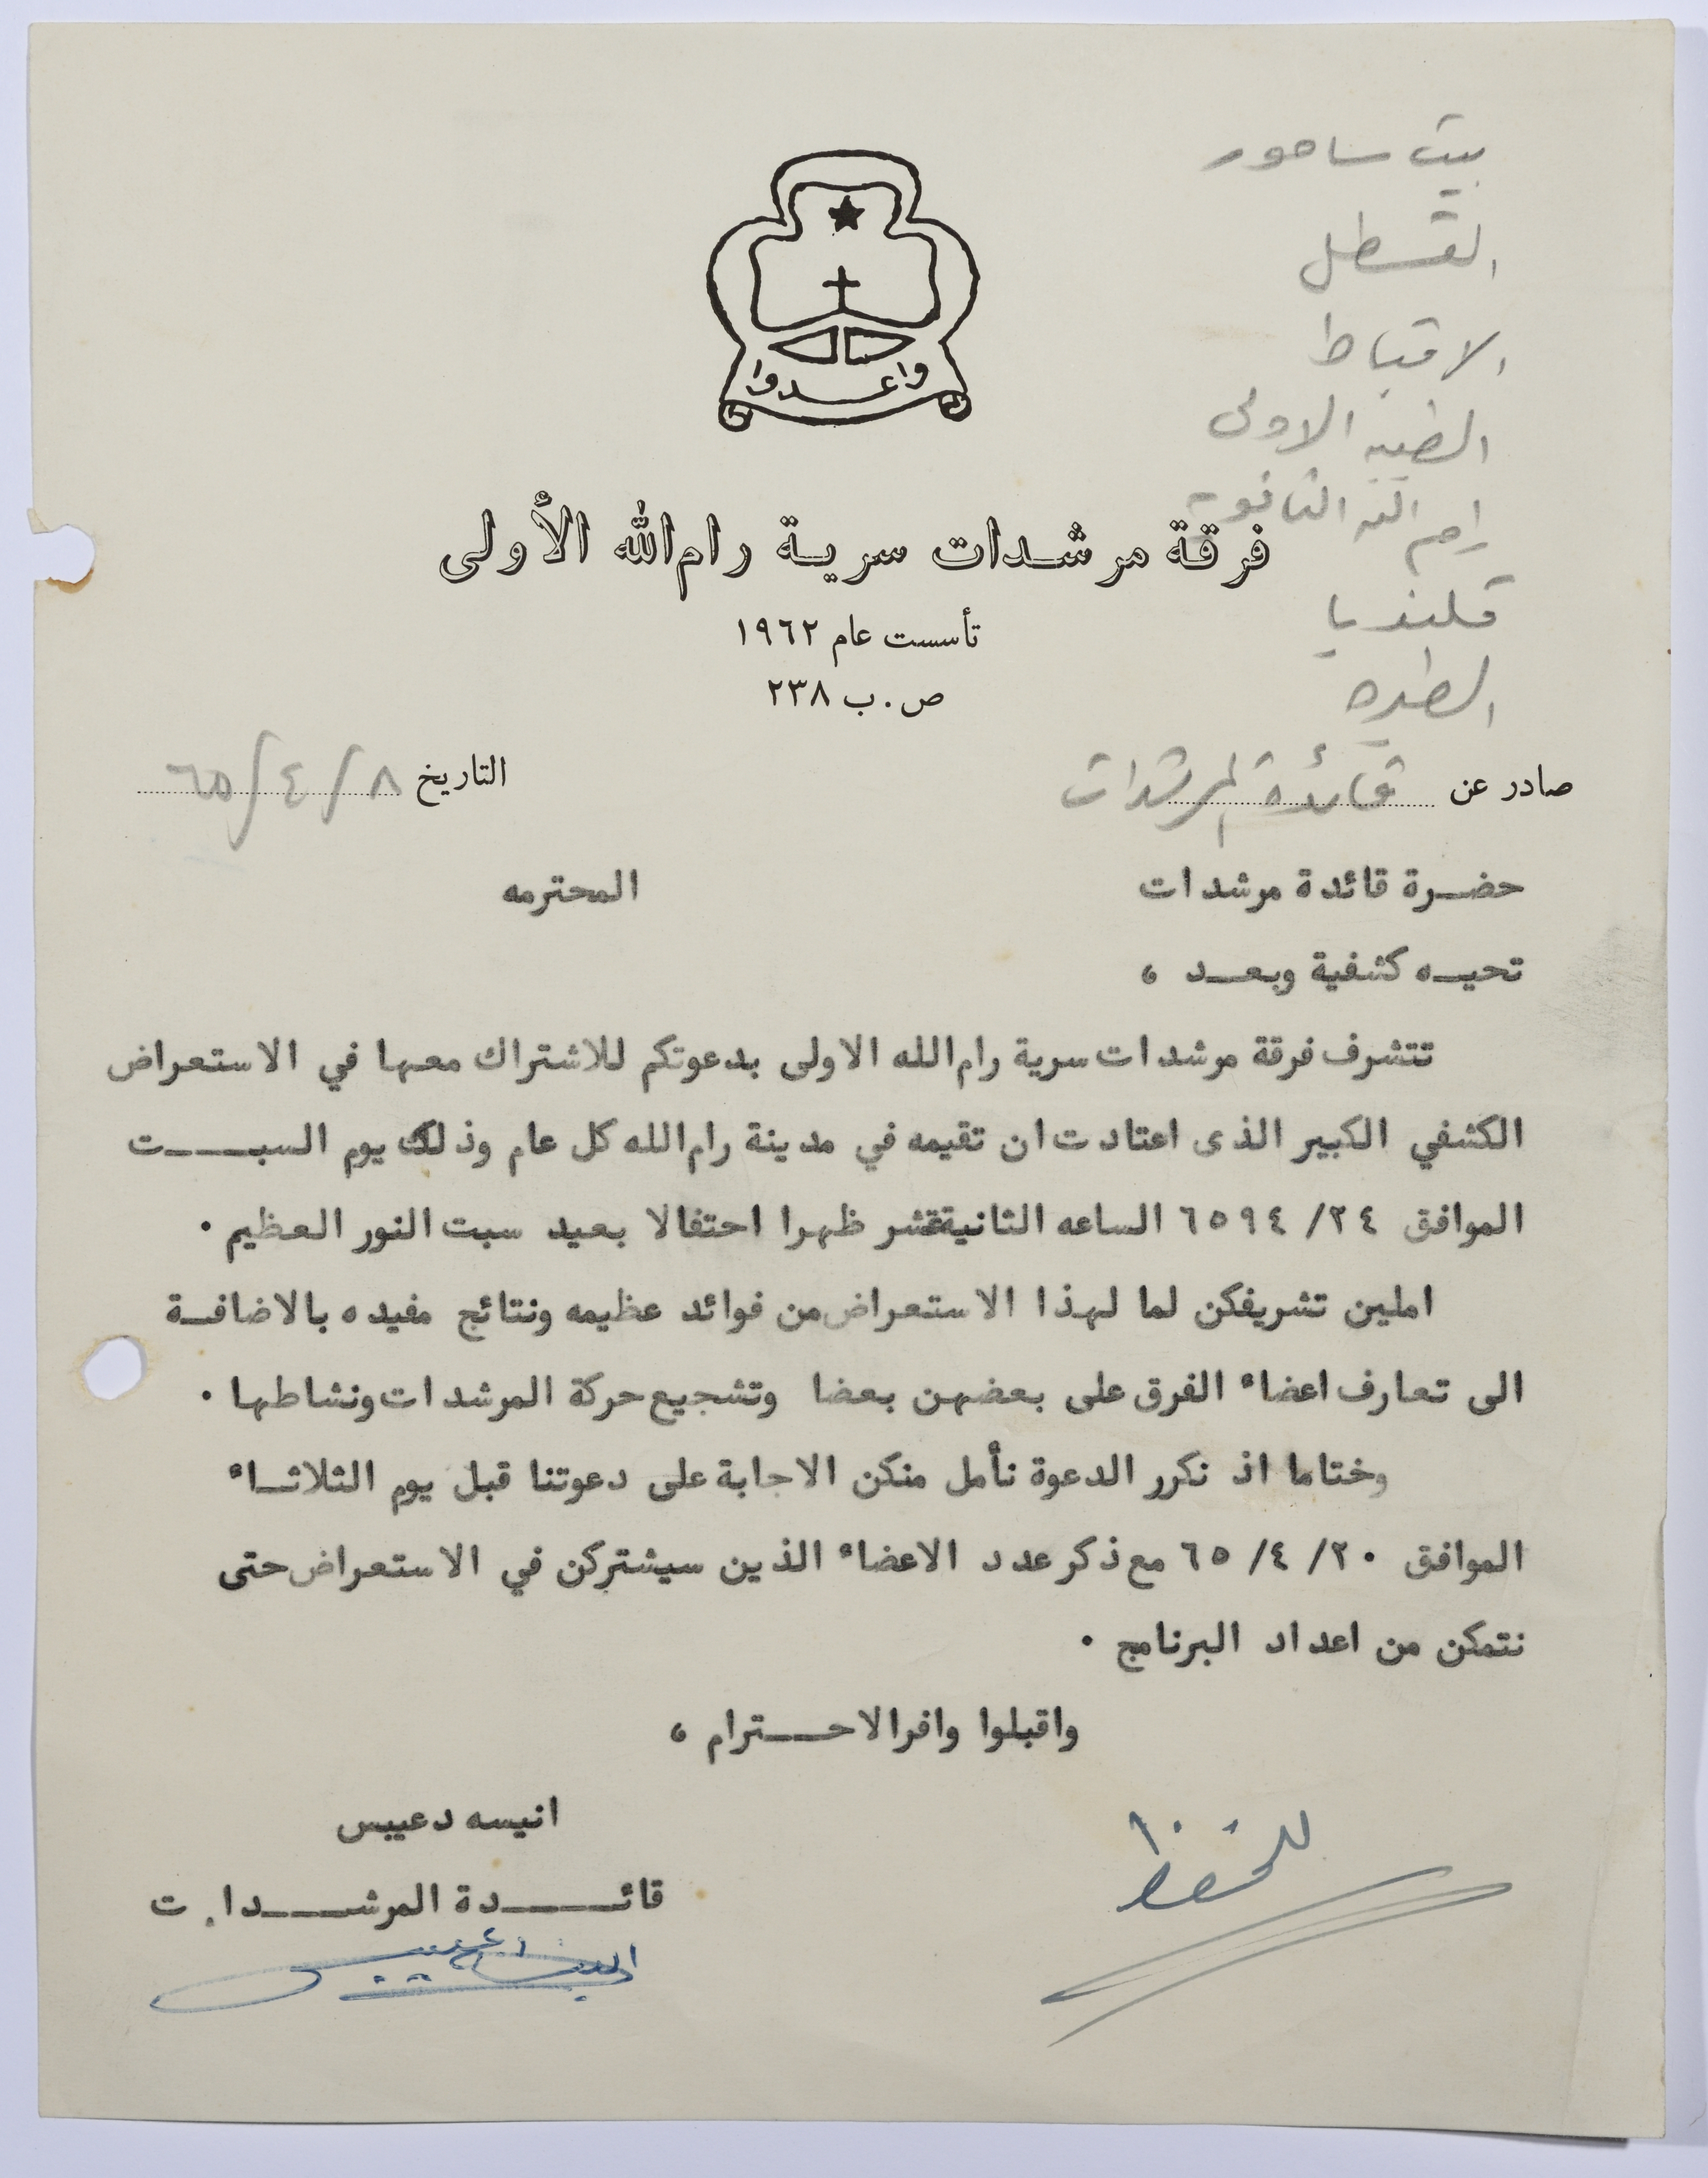 بيت ساحور
القسطل
الاقباط
الطيبه الاولى
رام الله الثانويه
قلنديا
الطيره
واعدوا
فرقة مرشدات سرية رام الله الأولى
تأسست عام ١٩٦٢
ص.ب ٢٣٨
صادر عن قائدة المرشدات
التاريخ ٨/٤/٦٥
حضرة قائدة مرشدات المحترمه
تحيه كشفية وبعد ،
تتشرف فرقة مرشدات سرية رام الله الاولى بدعوتكم للاشتراك معها في الاستعراض
الكشفي الكبير الذى اعتادت ان تقيمه في مدينة رام الله كل عام وذلك يوم السبت
الموافق ٢٤/ ٦٥٩٤ الساعه الثانية عشر ظهرا احتفالا بعيد سبت النور العظيم .
املين تشريفكن لما لهذا الاستعراض من فوائد عظيمه ونتائج مفيده بالاضافة
الى تعارف اعضاء الفرق على بعضهن بعضا وتشجيع حركة المرشدات ونشاطها .
وختاما اذ نكرر الدعوة نأمل منكن الاجابة على دعوتنا قبل يوم الثلاثاء
الموافق ٢٠/ ٤/ ٦٥ مع ذكر عدد الاعضاء الذين سيشتركن في الاستعراض حتى
نتمكن من اعداد البرنامج .
واقبلوا وافر الاحترام ،
انيسه دعيبس
قائدة المرشدات
للحفظ